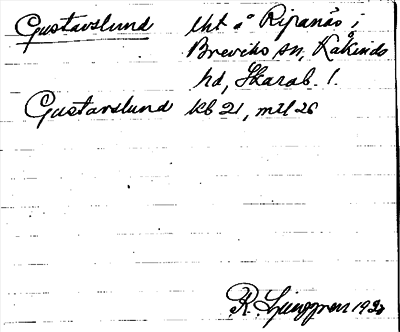 Gustavslund lht å Ripanäs i
Breviks sn, Kåkinds
hd, Skarab. l.
Gustavslund kb 21, mtl 26
R. Ljunggren 1930